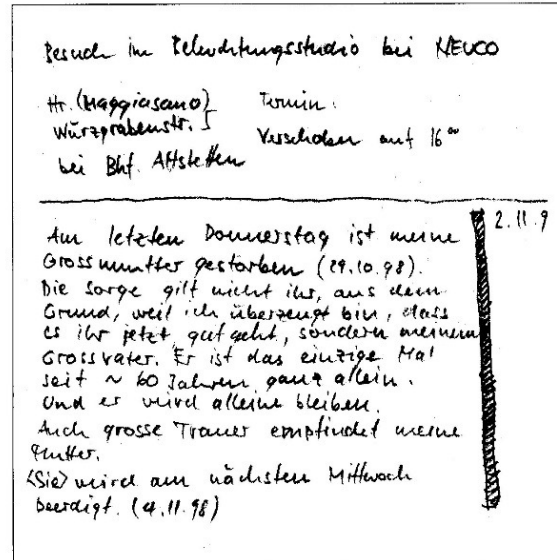 Besuch im Beleuchtungsstudio bei NEUCO
Hr. (Maggiasano) Termin:
Würzgrabenstr. 5 Verschoben auf 16⁰⁰
bei Bhf. Altstetten
2.11.9
Am letzten Donnerstag ist meine
Grossmutter gestorben (29.10.98).
Die Sorge gilt nicht ihr, aus dem
Grund, weil ich überzeugt bin, dass
es ihr jetzt gut geht, sondern meinem
Grossvater. Er ist das einzige Mal
seit ~ 60 Jahren ganz allein.
Und er wird alleine bleiben.
Auch grosse Trauer empfindet meine
Mutter.
<Sie> wird am nächsten Mittwoch
beerdigt. (4.11.98)